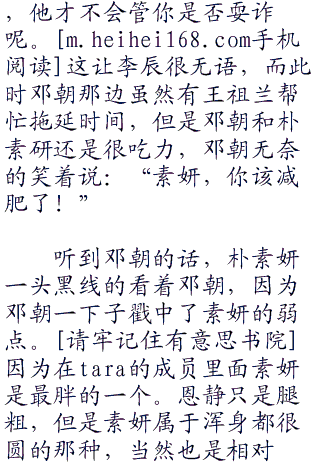 ，他才不会管你是否耍诈
呢。[m.heihei168.com手机
阅读]这让李辰很无语，而此
时邓朝那边虽然有王祖兰帮
忙拖延时间，但是邓朝和朴
素研还是很吃力，邓朝无奈
的笑着说：“素妍，你该减
肥了！”
听到邓朝的话，朴素妍
一头黑线的看着邓朝，因为
邓朝一下子戳中了素妍的弱
点。[请牢记住有意思书院]
因为在tara的成员里面素妍
是最胖的一个。恩静只是腿
粗，但是素妍属于浑身都很
圆的那种，当然也是相对